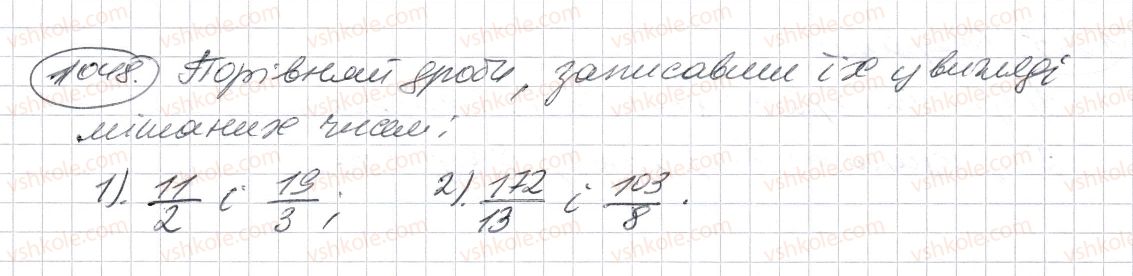 1048. Порівняй дроби, записавши їх у вигляді
мішаних чисел:
1). 11/2 і 19/3; 2). 172/13 і 103/8.
vshkole.com